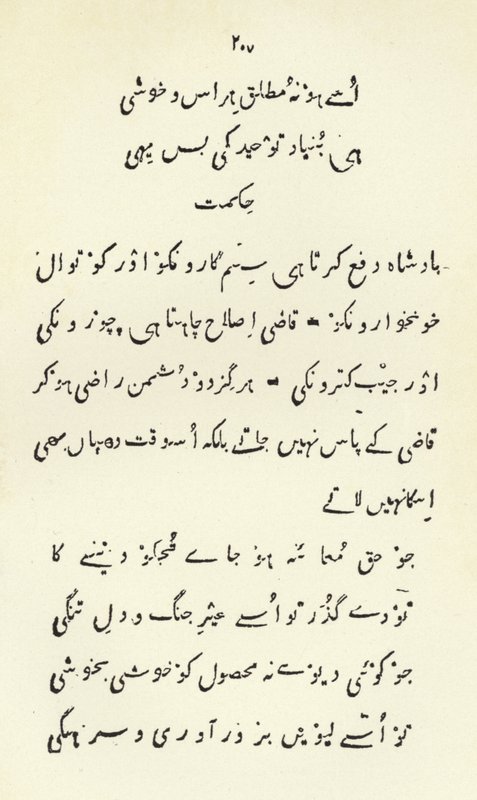 ۲۰۷
اُسے ہوٗ نہ مُطلق ہِراس و خوشی
ہی بُنیاد توٗحید کی بس یِہی
حِکمت
بادشاہ دفع کرتا ہی سِتمگارونکوٗ اوٗر کوٗتوال
خونخوارونکوٗ - قاضی اِصلاح چاہتا ہی چوٗرونکی
اوٗر جیٗب کترونکی - ہرگِز دوٗ دُشمن راضی ہوٗکر
قاضی کے پاس نہیں جاتے بلکہ اُسوقت دھیاں بھی
اِسکا نہیں لاتے
جوٗ حق مُعائنہ ہوٗ جاے تُجھکوٗ دیٗنے کا
توٗ دے گُذر توٗ اُسے غیٗرِ جنگ و دِل تنگی
جوٗ کوٗئی دیوٗے نہ محصول کوٗ خوشی بخوشی
توٗ اُسّے لیوٗیں بزوٗر آوری و سرہنگی